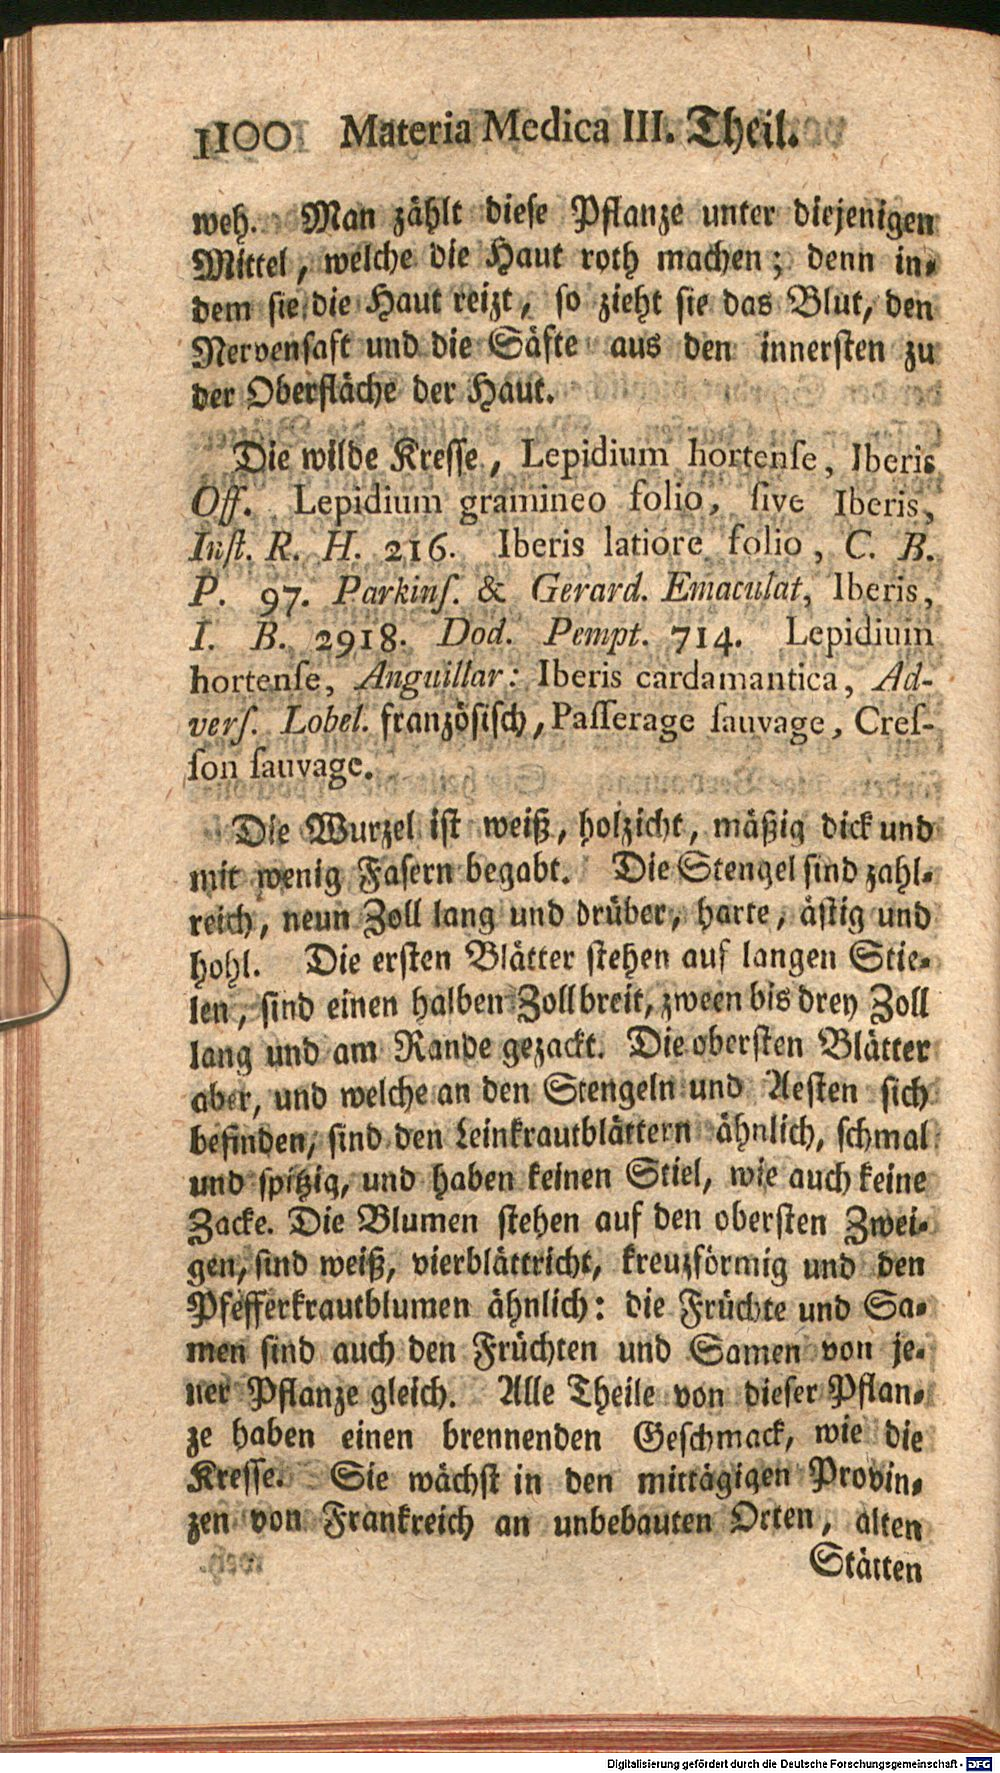 1100 Materia Medica III. Theil.
weh. Man zählt diese Pflanze unter diejenigen
Mittel, welche die Haut roth machen; denn in-
dem sie die Haut reizt, so zieht sie das Blut, den
Nervensaft und die Säfte aus den innersten zu
der Oberfläche der Haut.
Die wilde Kresse, Lepidium hortenſe, Iberis
Off. Lepidium gramineo folio, ſive Iberis,
Inſt. R. H. 216. Iberis latiore folio, C. B.
P. 97. Parkinſ. & Gerard. Emaculat, Iberis,
I. B. 2918. Dod. Pempt. 714. Lepidium
hortenſe, Anguillar: Iberis cardamantica, Ad-
verſ. Lobel. französisch, Paſſerage ſauvage, Creſ-
ſon ſauvage.
Die Wurzel ist weiß, holzicht, mäßig dick und
mit wenig Fasern begabt. Die Stengel sind zahl-
reich, neun Zoll lang und drüber, harte, ästig und
hohl. Die ersten Blätter stehen auf langen Stie-
len, sind einen halben Zoll breit, zween bis drey Zoll
lang und am Rande gezackt. Die obersten Blätter
aber, und welche an den Stengeln und Aesten sich
befinden, sind den Leinkrautblättern ähnlich, schmal
und spitzig, und haben keinen Stiel, wie auch keine
Zacke. Die Blumen stehen auf den obersten Zwei-
gen, sind weiß, vierblättricht, kreuzförmig und den
Pfefferkrautblumen ähnlich: die Früchte und Sa-
men sind auch den Früchten und Samen von je-
ner Pflanze gleich. Alle Theile von dieser Pflan-
ze haben einen brennenden Geschmack, wie die
Kresse. Sie wächst in den mittägigen Provin-
zen von Frankreich an unbebauten Orten, alten
Stätten
Digitalisierung gefördert durch die Deutsche Forschungsgemeinschaft - DFG